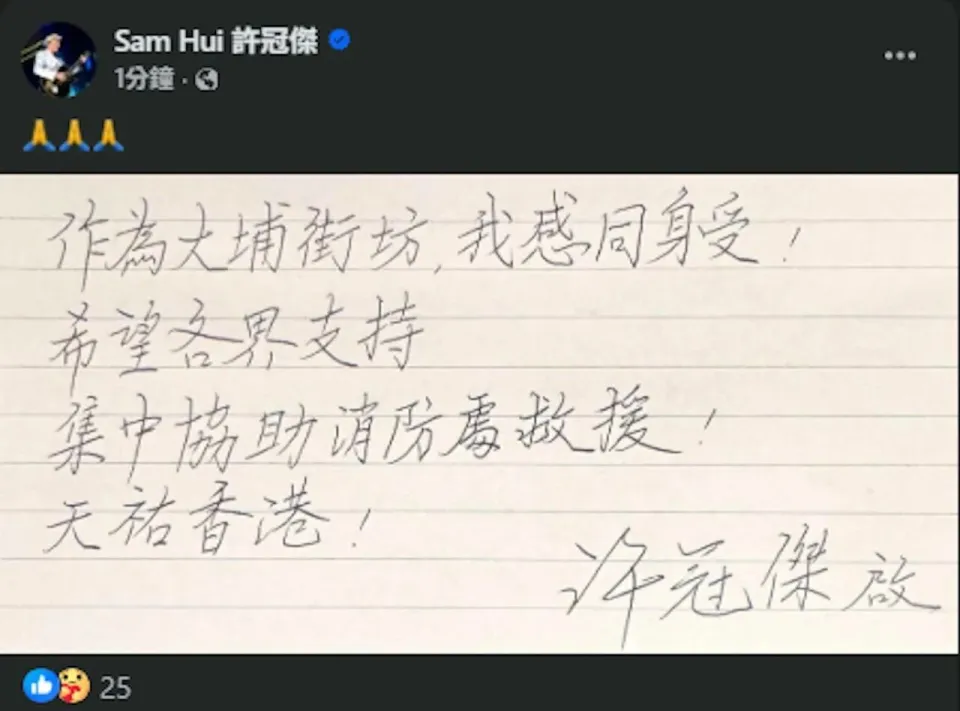 Sam Hui 許冠傑
1分鐘 ·
🙏🙏🙏
作為大埔街坊,我感同身受!
希望各界支持
集中協助消防處救援!
天祐香港!
許冠傑 啟
25